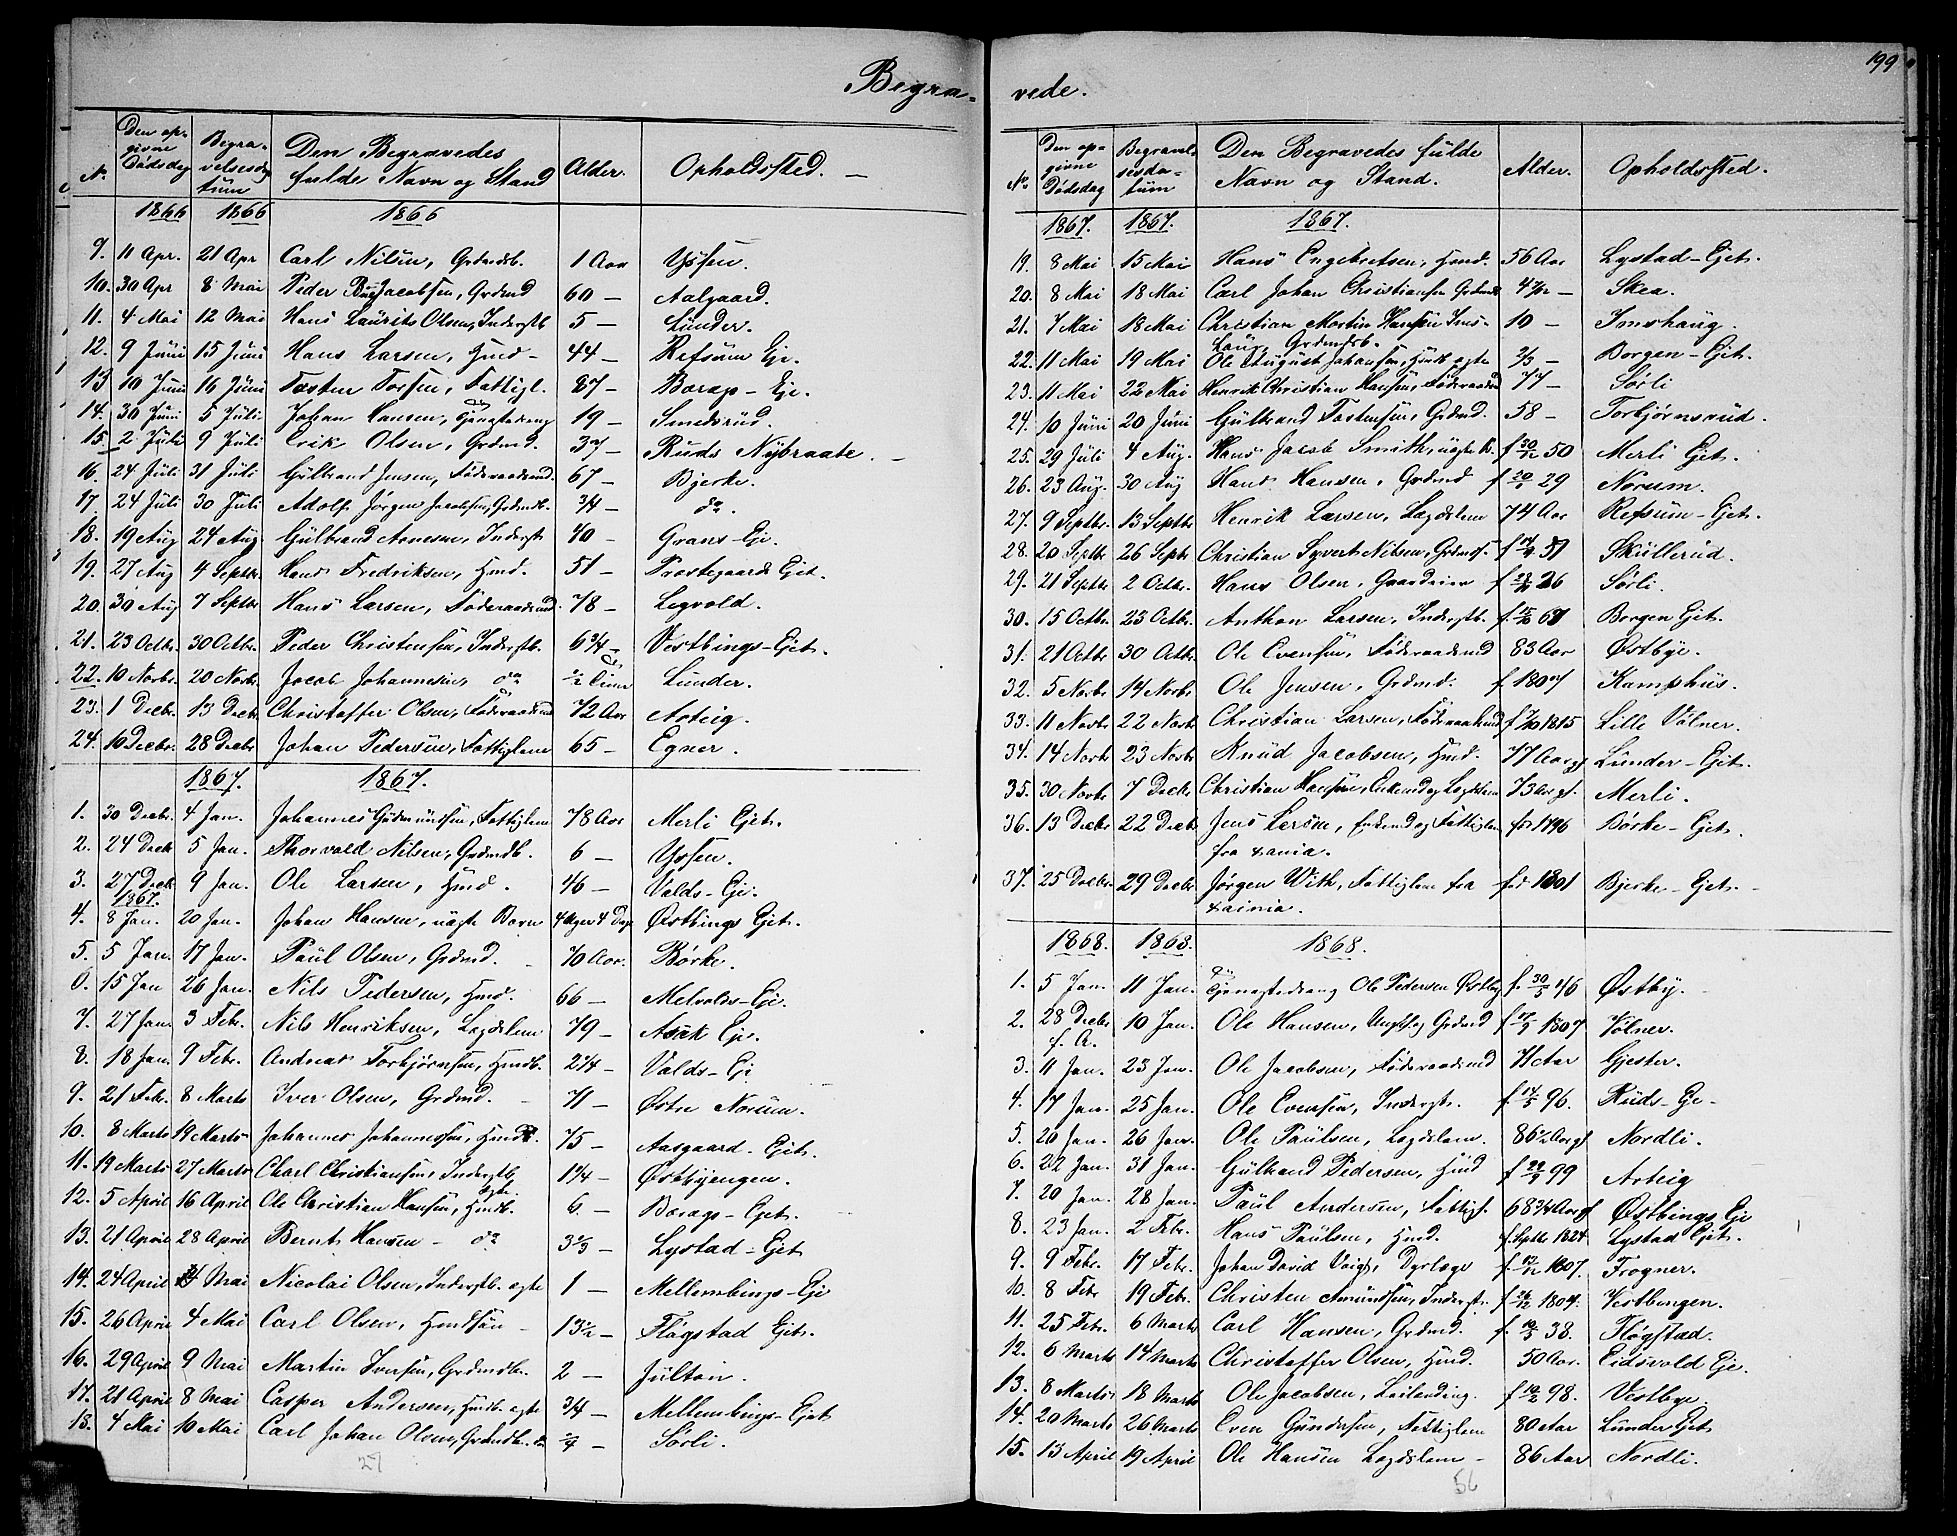 Begra-
Den op-
givne
Dødsdag
Begra-
velsesda-
tum
No.
Den Begravedes
fulde Navn og Stand
Alder.
Opholdssted. —
1866 1866 1866
9. 11 Apr. 21 Apr Carl Nilsen, Grdmdb. 1 Aar Yssen.
10. 30 Apr 8 Mai Peder Jacobsen, Grdmd 60 — Aalgaard.
11. 4 Mai 12 Mai Hans Laurits Olsen, Inderstb 5 — Lunder.
12. 9 Juni 15 Juni Hans Larsen, Hmd — 44 — Refsum Eje.
13 10 Juni 16 Juni Tosten Tossen, Fattigl. 87 — Borop — Eje.
14. 30 Juni 5 Juli Johan Hansen, Tjenestedreng 19 — Smedsrud.
15. 2 Juli 9 Juli Erik Olsen, Grdmd. 37 — Ruds Nybraate. —
16. 24 Juli 31 Juli Gulbrand Jensen, Føderaadsmd. 67 — Bjerke.
17. 24 Juli 30 Juli Adolf Jørgen Jacobsen, Grdmdb. 3/4 — do.
18. 19 Aug 24 Aug. Gulbrand Arnesen, Inderst 40 — Grans — Eje.
19. 27 Aug 4 Septbr. Hans Fredriksen, Hmd. 51 — Prostegaards Ejet.
20. 30 Aug 7 Septbr Hans Larsen, Føderaadsmd. 78 — Legvold.
21. 23 Octbr. 30 Octbr. Peder Christensen, Inderstb. 6 3/4 — Vestbings — Ejet.
22. 10 Novbr. 20 Novbr. Jacob Johannesen, do 1/2 Time Lunder.
23. 1 Decbr. 13 Decbr Christoffer Olsen, Føderaadsmd 72 Aar Arteig.
24. 10 Decbr. 28 Decbr Johan Pedersen, Fattiglem 65 — Egner.
1867. 1867.
1. 30 Decbr. 4 Jan. Johannes Gudmundsen, Fattiglem 78 Aar Merli Ejet.
2. 24 Decb 5 Jan. Thorvald Nilsen, Grdmdb. 6 — Yssen.
3. 27 Decb 9 Jan. Ole Larsen, Hmd. 46 — Valds — Eje.
1867.
4. 8 Jan. 20 Jan. Johan Hansen, uægte Barn 4 Uger 4 Dage Østbings Ejet.
5. 5 Jan. 17 Jan. Paul Olsen, Grdmd. — 70 Aar. Børke.
6. 15 Jan 26 Jan. Nils Pedersen, Hmd. 66 — Melvolds — Eje.
7. 27 Jan 3 Febr. Nils Henriksen, Lægdslem 79 — Asak Eje.
8. 18 Jan. 9 Febr. Andreas Torbjørnsen, Hmdb. 2 1/4 — Valds — Eje
9. 21 Febr. 8 Marts Iver Olsen, Grdmd. — 71 — Østre Norum.
10. 8 Marts 19 Marts Johannes Johannessen, Hmd. 75 — Aasgaard. Ejet.
11. 19 Marts 27 Marts Charl Christiansen, Inderstb 1 1/4 — Østbyengen.
12. 5 April 16 April Ole Christian Hansen, Hmdb. ægte 6 — Borogs — Ejet.
13. 21 April 28 April Bernt Hansen — do 3 2/3 — Lystad — Ejet
14. 24 April 4 Mai Nicolai Olsen, Inderstb. ægte 1 — Mellembings — Eje
15. 26 April 4 Mai Carl Olsen, Hmdsøn — 13 1/2 — Fløgstad Ejet.
16. 29 April 9 Mai Martin Iversen, Grdmdbr. 2 — Julton.
17. 21 April 8 Mai Casper Andersen, Hmdb. ægte 3/4 — Mellembings — Ejet
18. 4 Mai 10 Mai Carl Johan Olsen, Grdmdb. — Sørli.
27
199
vede.
No.
Den op-
givne
Dødsdag
Begravel-
sesda-
tum
Den Begravedes fulde
Navn og Stand.
Alder.
Opholdssted.
1867. 1867. 1867.
19. 8 Mai 15 Mai Hans Engebretsen, Hmd. 56 Aar Lystad — Ejet.
20. 8 Mai 18 Mai Carl Johan Christiansen Grdmdb 4 1/2 — Skea.
21. 7 Mai 18 Mai Christian Martin Hansen Ims-
haug, Grdmdsb. 10 — Imshaug.
22. 11 Mai 19 Mai Ole August Johansen, Hmdb ægte 2/3 — Borgen — Ejet.
23. 11 Mai 22 Mai Henrik Christian Hansen, Føderaadsmd 77 — Sørli
24. 10 Juni 20 Juni Gulbrand Tostensen, Grdmd. 58 — Torbjørnsrud.
25. 29 Juli 4 Aug. Hans Jacob Smith, uægte B. f 50 Merli Ejet.
26. 23 Aug. 30 Aug Hans Hansen, Grdmd f 29 Norum.
27. 9 Septbr. 13 Septbr Henrik Larsen, Lægdslem 74 Aar Refsum — Ejet.
28. 20 Septbr 26 Septbr Christian Syvert Nilsen, Grdmds. f Skullerud.
29. 21 Septbr 2 Octbr. Hans Olsen, Gaardeier f 26 Sørli.
30. 15 Octbr. 23 Octbr. Anthon Larsen, Inderstb. f. Borgen Ejet.
31. 21 Octbr 30 Octbr. Ole Evensen, Føderaadsmd 83 Aar Østbye.
32. 5 Novbr 14 Novbr. Ole Jensen, Grdmd. f 1807 Kamphus.
33. 11 Novbr 22 Novbr Christian Larsen, Føderaadsmd f 7/10 1815 Lille Vølner.
34. 14 Novbr 23 Novbr Knud Jacobsen, Hmd. 77 Aar gl Lunder — Ejet.
35. 30 Novbr 7 Decbr Christian Hansen, Enkemd og Lægdslem 73 Aar gl. Merli.
36. 13 Decbr 22 Decbr Jens Larsen, Enkemd og Fattiglem
fra xania. før 1796 Børke — Ejet.
37. 25 Decbr. 29 Decbr Jørgen With, Fattiglem fra
xainia. fød 1801 Bjerke — Ejet. —
1868. 1868. 1868.
1. 5 Jan. 11 Jan. Tjenestedreng Ole Pedersen Østby f. 30/5 46 Østby.
2. 28 Decbr
f. A. 10 Jan. Ole Hansen, Ungk. og Grdmd f 1807 Vølner.
3. 11 Jan. 23 Jan. Ole Jacobsen, Føderaadsmd Gjester.
4. 17 Jan. 25 Jan. Ole Evensen, Inderst. f. 96. Ruds — Eje —
5. 20 Jan. 26 Jan. Ole Paulsen, Lægdslem. 86 1/2 Aar gl Nordli.
6. 22 Jan. 31 Jan. Gulbrand Pedersen, Hmd f 99 Arteig
7. 20 Jan. 28 Jan. Paul Andersen, Fattigl. 68 3/4 Aar gl Østbings Eje
8. 23 Jan. 2 Febr. Hans Paulsen, Hmd. f. Septbr 1824 Lystad Ejet.
9. 9 Febr. 17 Febr. Johan David Voigt, Dyrlæge f. 1807. Frogner.
10. 8 Febr 19 Febr. Christen Amundsen, Inderst. f 1804. Vestbengen.
11. 25 Febr. 6 Marts Carl Hansen, Grdmd. f. 38. Fløgstad.
12. 6 Marts 14 Marts Christoffer Olsen, Hmd. 50 Aar. Eidsvold Eje.
13. 8 Marts 18 Marts Ole Jacobsen, Leilending. f 98. Vestbye.
14. 20 Marts 26 Marts Even Gundersen, Fattiglem 80 Aar Lunder Ejet
15. 13 April 19 April Ole Hansen Lægdslem — 86 Aar Nordli.
56